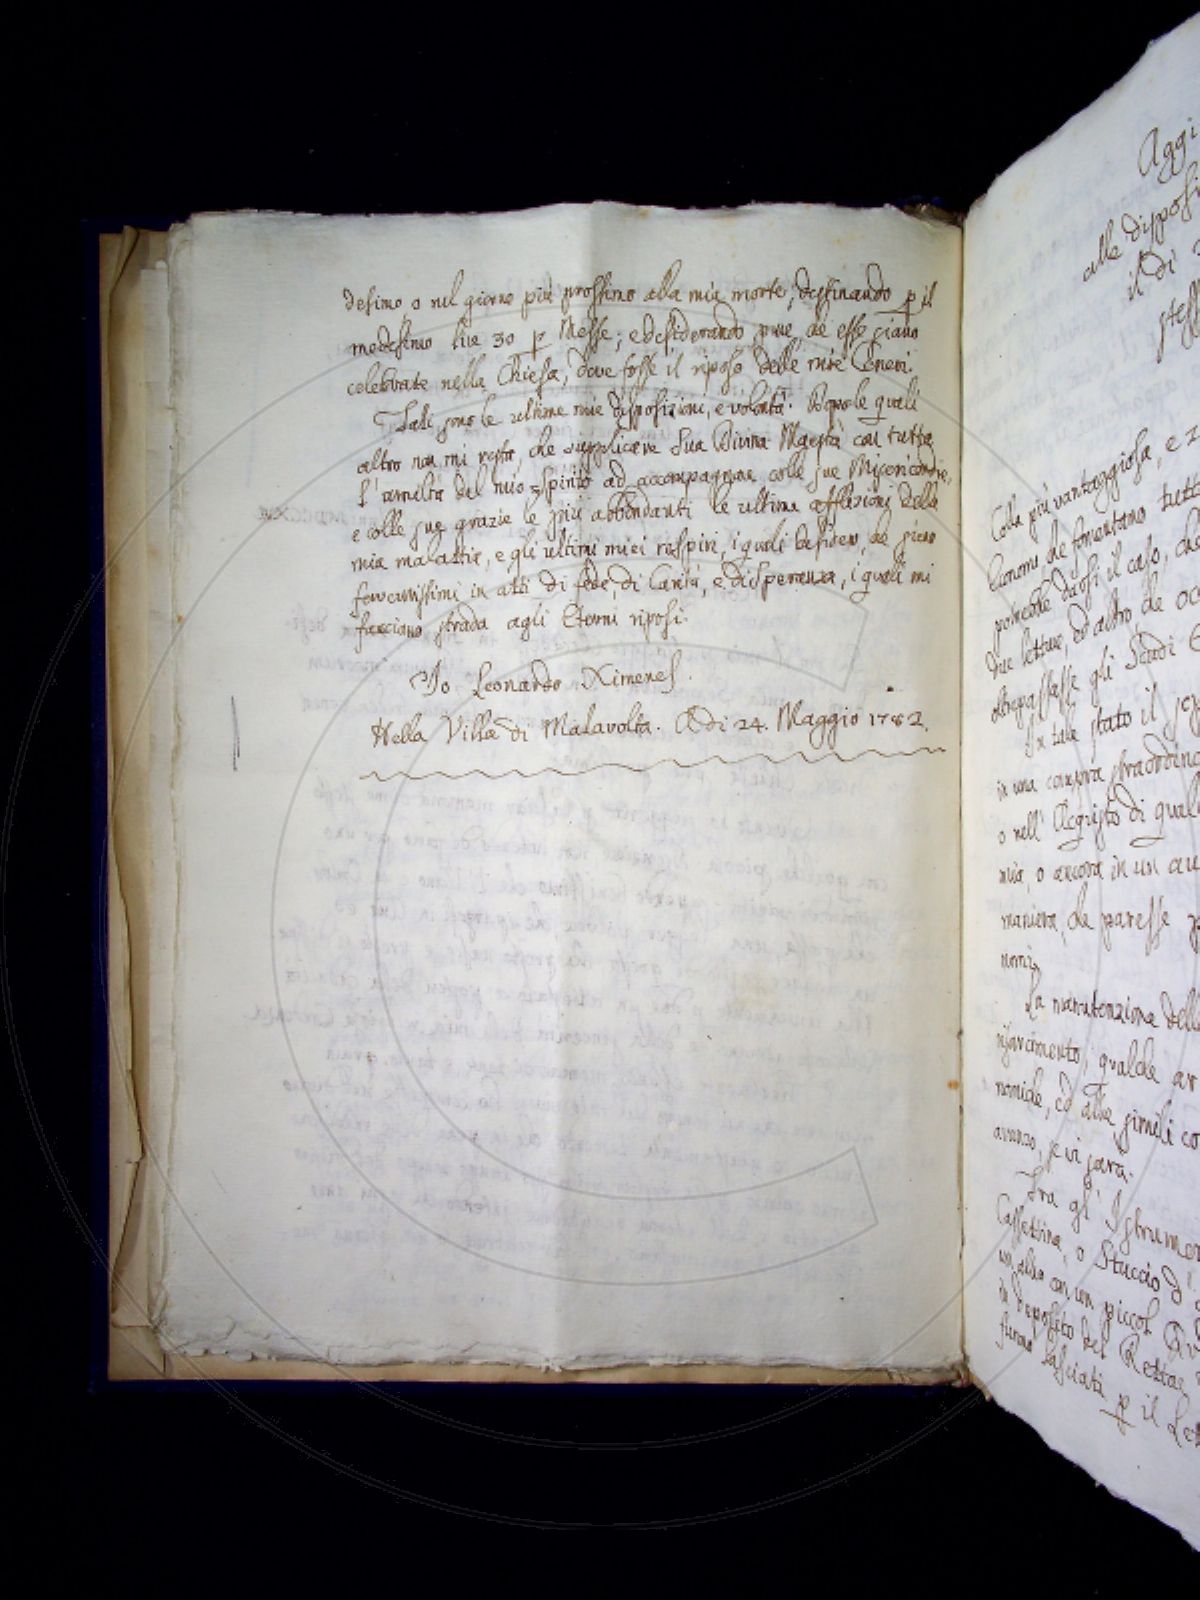 desimo, o nel giorno più prossimo alla mia morte, destinando p il
medesimo lire 30 p Messe; e desiderando pure, che esse siano
celebrate nella Chiesa, dove fosse il riposo delle mie Ceneri.
Tali sono le ultime mie disposizioni, e volontà. Dopo le quali
altro non mi resta, che supplicare Sua Divina Maestà con tutta
l'umiltà del mio spirito ad accompagnare colle sue Misericordie,
e colle sue grazie le più abbondanti le ultime afflizioni della
mia malattia, e gli ultimi miei respiri, i quali desidero, che sieno
ferventissimi in atti di fede, di Carità, e di speranza, i quali mi
facciano strada agli Eterni riposi.
Io Leonardo Ximenes.
Nella Villa di Malavolta. Adi 24. Maggio 1782.
Aggi
alle disposi
il di
stess
Colla più vantaggiosa, e
che fomentano tutt
potrebbe darsi il caso, che
due letture, ed altro, che
oltrepassasse gli Scudi
In tale stato il
in una
o nell' Acquisto di qual
mia, o ancora in un au
maniera, che paresse
nomi.
La manutenzione delle
risarcimento, qualche
nomiche, ed altre simili
avanzo, se vi sarà.
Tra gl' Istrumen
Cassettina, o Stuccio d'
un altro con un piccol
in deposito del Rettor
furno lasciati p il